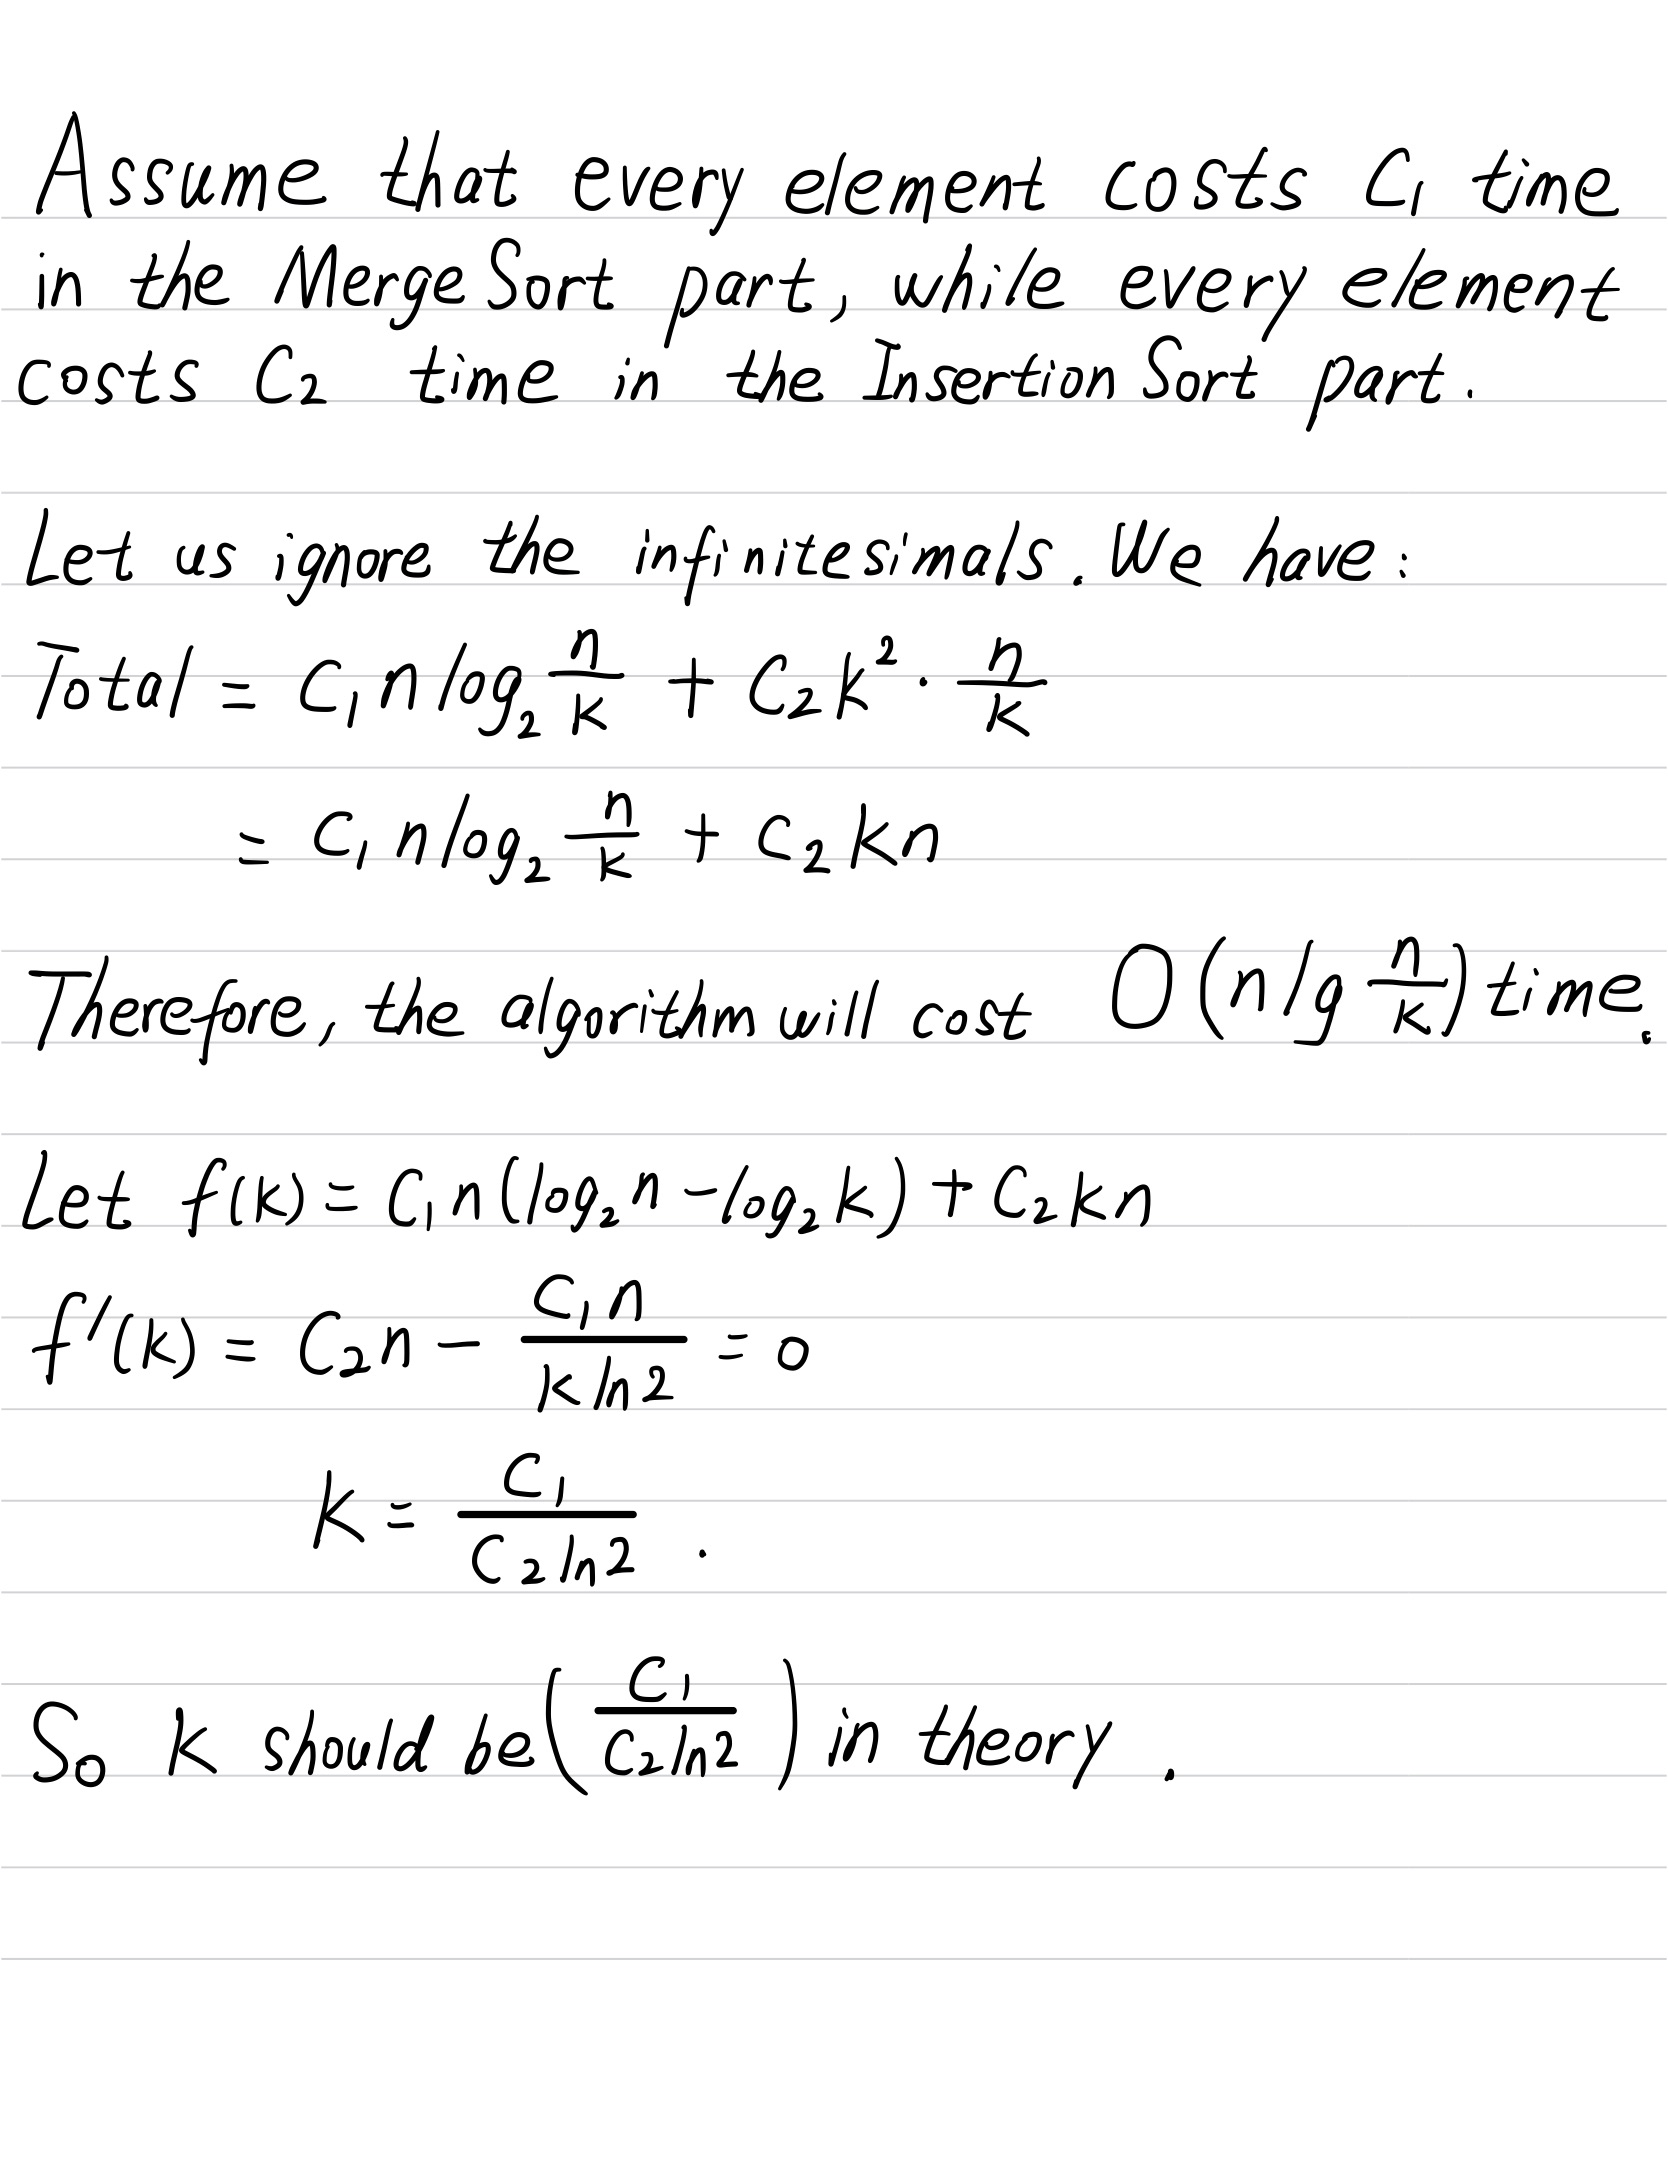 Assume that every element costs C₁ time
in the MergeSort part, while every element
costs C₂ time in the InsertionSort part.
Let us ignore the infinitesimals. We have:
Total = C₁ n log₂ n/k + C₂ k² · n/k
= C₁ n log₂ n/k + C₂ k n
Therefore, the algorithm will cost O(n lg n/k) time.
Let f(k) = C₁ n (log₂ n - log₂ k) + C₂ k n
f'(k) = C₂ n - C₁ n / k ln2 = 0
k = C₁ / C₂ ln2 .
So k should be (C₁ / C₂ ln2) in theory.